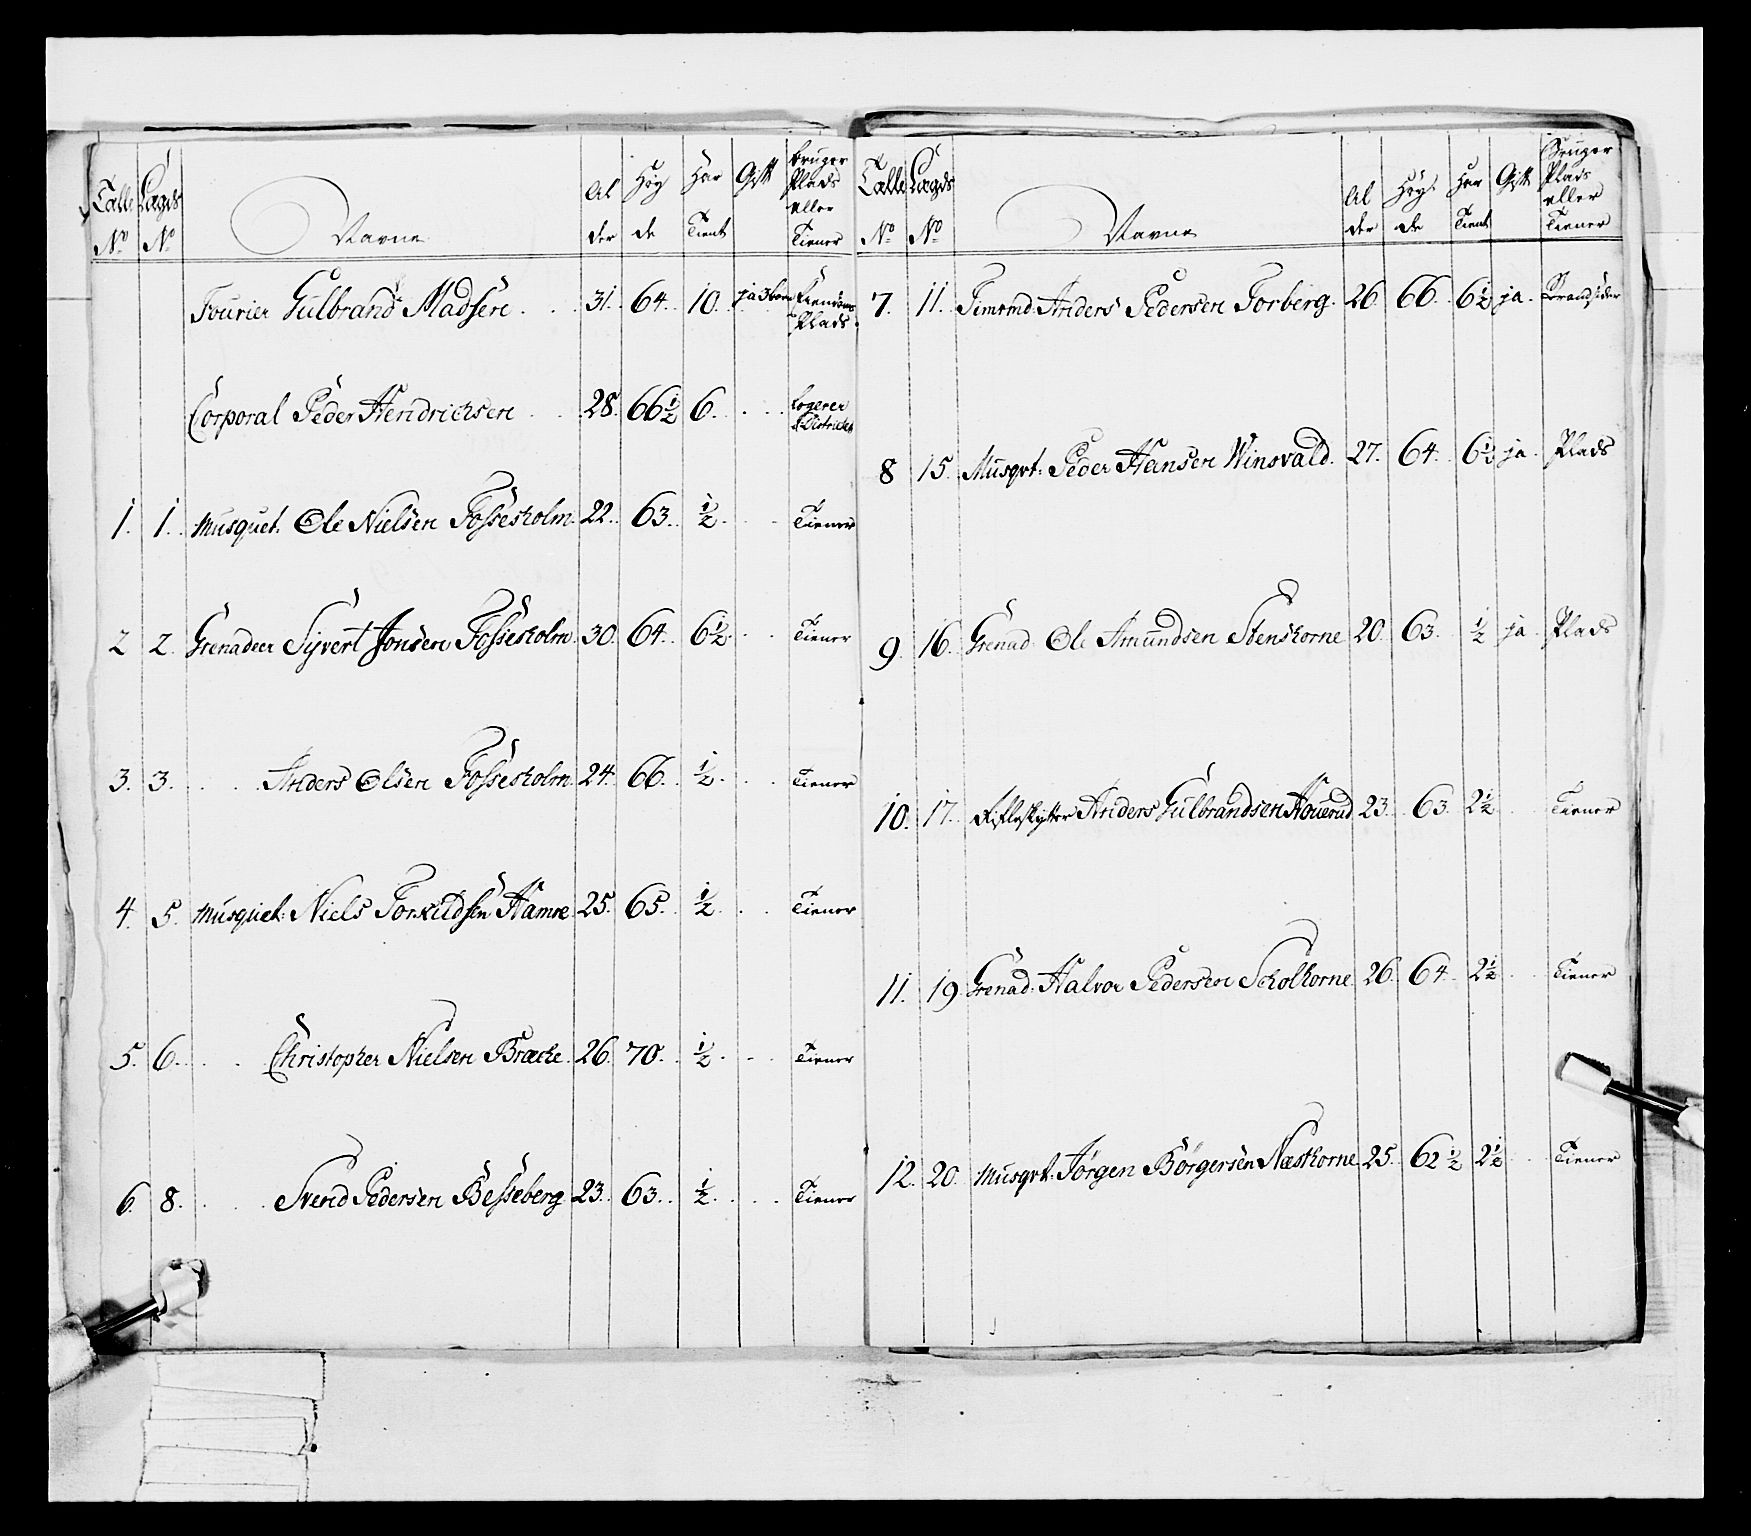 Talle N° Lægds N° Navne Al der Høy de Har Tient Gift bruger Plads eller Tiener
Fourier Gulbrand Madsen . . 31. 64. 10. ja 3 børn Plads.
Corporal Peder Hendrichsen . . 28. 66½ 6. . . Logerer i Districtet
1. 1. Musquet. Ole Nielsen Fossesholm. 22. 63. ½ . . Tiener
2 2. Grenadeer Syvert Jonsen Fossesholm. 30. 64. 6½ . . Tiener
3. 3. . . . Anders Olsen Fossesholm. 24. 66. ½ . . Tiener
4. 5. Musquet: Niels Torkildsen Hamre. 25. 65. ½ . . Tiener
5. 6. . . Christopher Nielsen Bræcke. 26. 70. ½ . . Tiener
6. 8. . . . Svend Pedersen Besseberg. 23. 63. ½ . . Tiener
Talle N° Lægds N° Navne Al der Høy de Har Tient Gift Bruger Plads eller Tiener
7. 11. Timrmd: Anders Pedersen Torberg. 26. 66. 6½ ja.
8 15. Musqvt: Peder Hansen Winsvald. 27. 64. 6½ ja. Plads
9. 16. Grenad. Ole Amundsen Stenshorne 20. 63. ½ ja. Plads
10. 17. Rifleskytter Anders Gulbrandsen Houerud 23. 63. 2½ . . Tiener
11. 19. Grenad: Halvor Pedersen Skolhorne. 26. 64. 2½ . . Tiener
12. 20. Musqvt. Jørgen Børgersen Næshorne 25. 62½ 2½ . . Tiener